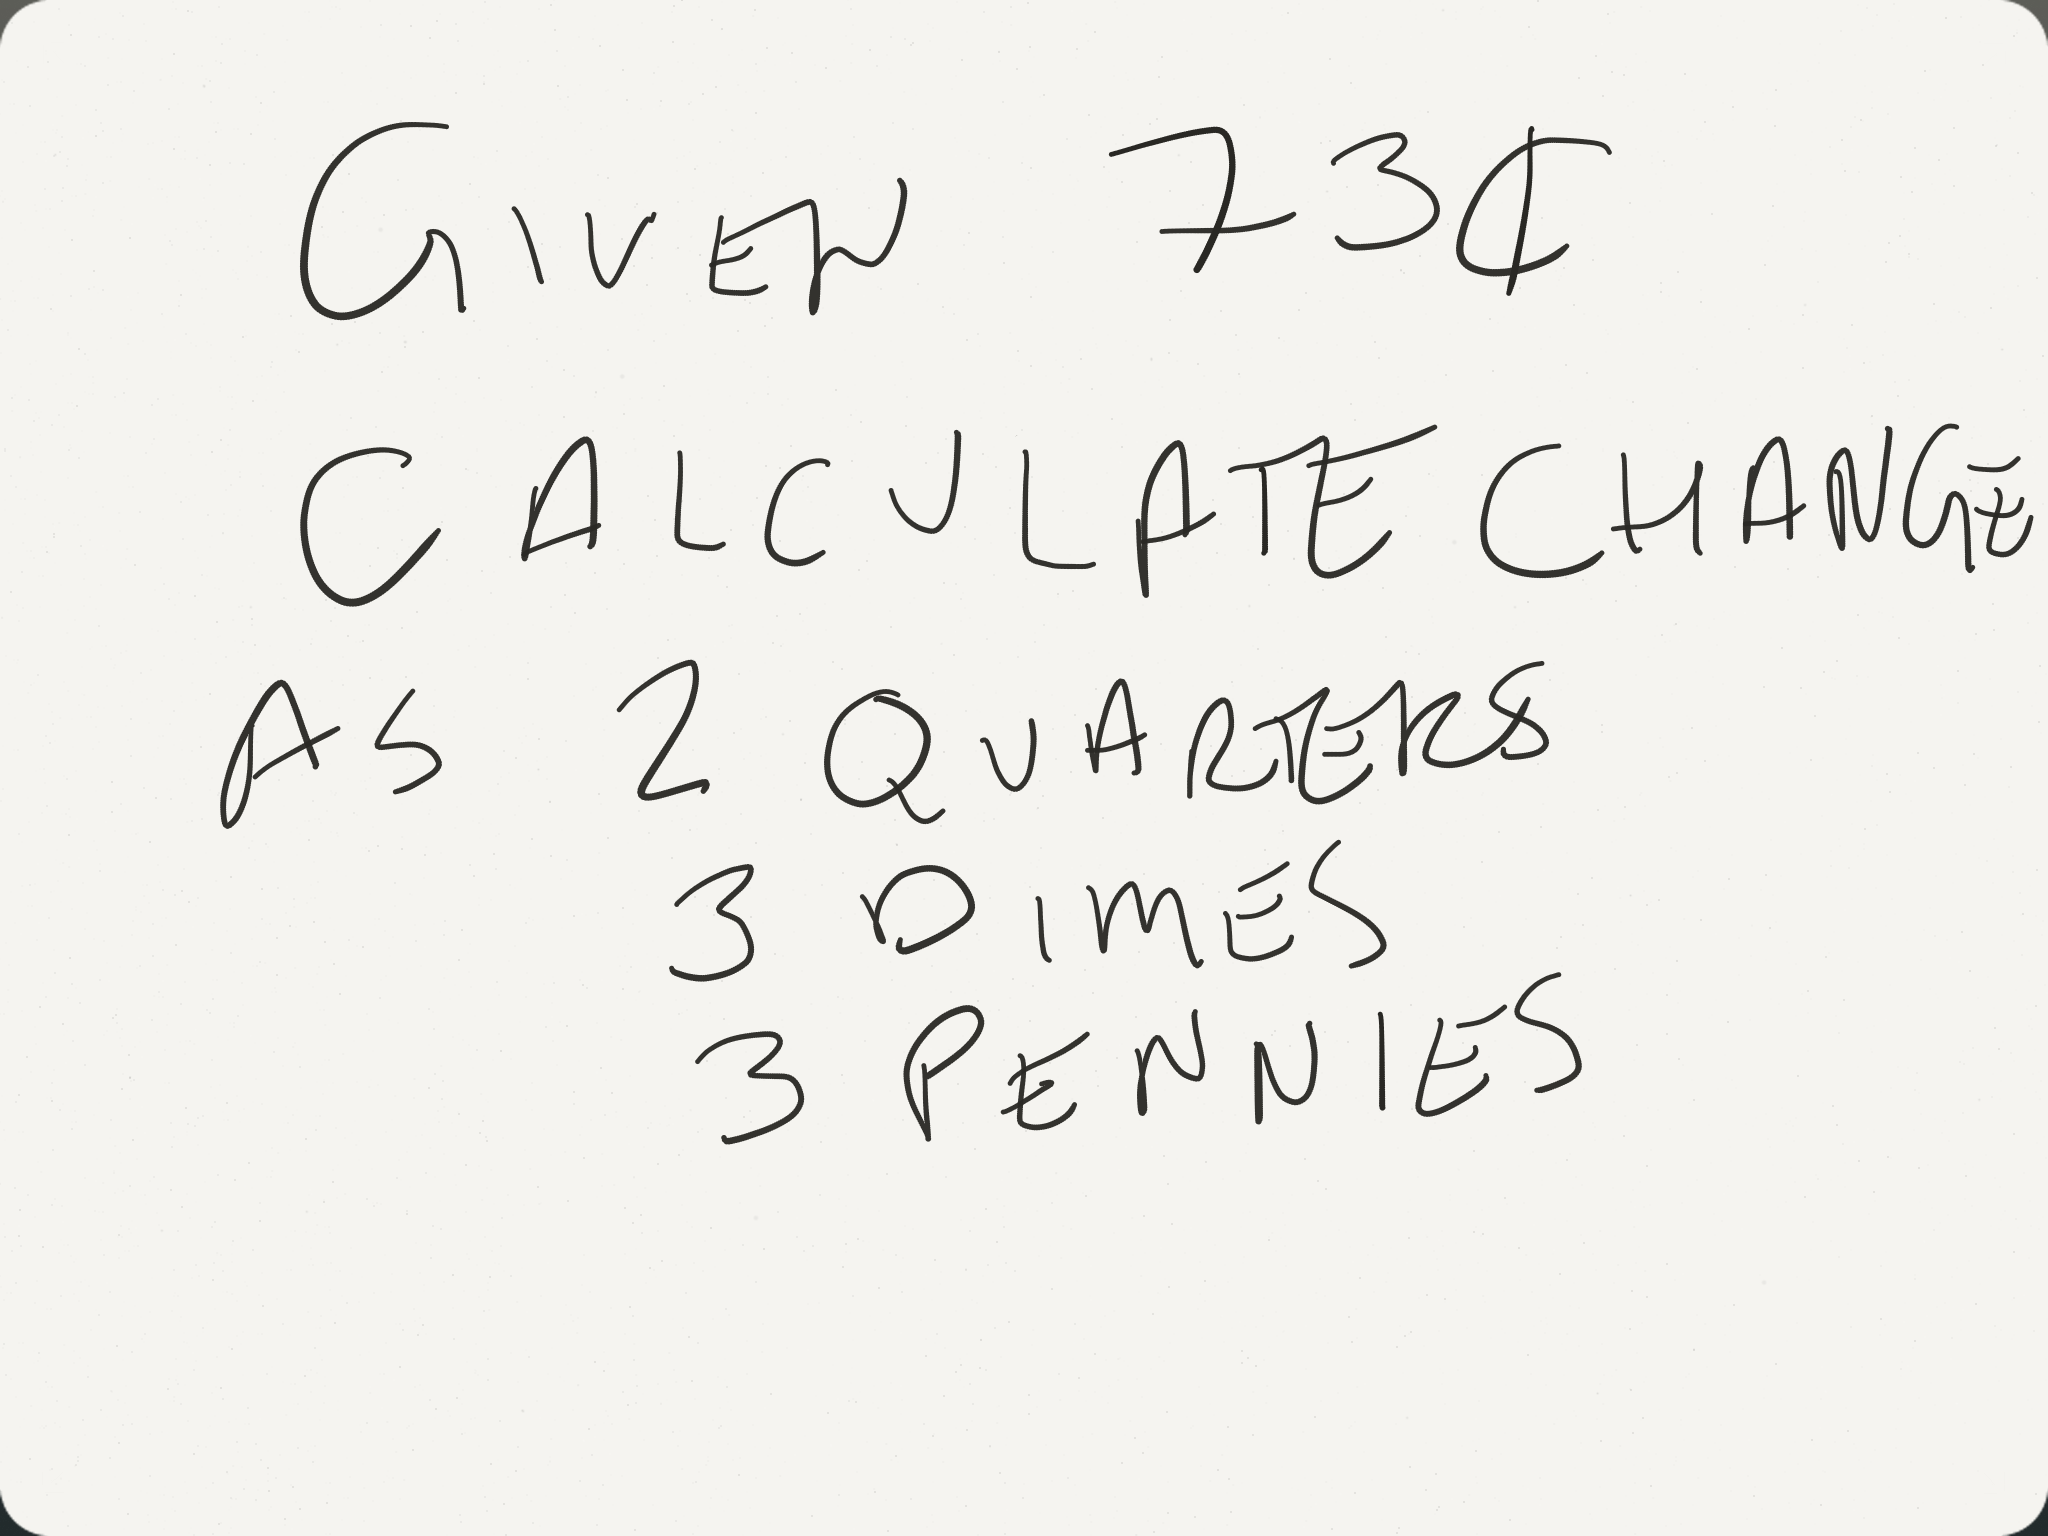 GIVEN 73¢
CALCULATE CHANGE
AS 2 QUARTERS
3 DIMES
3 PENNIES